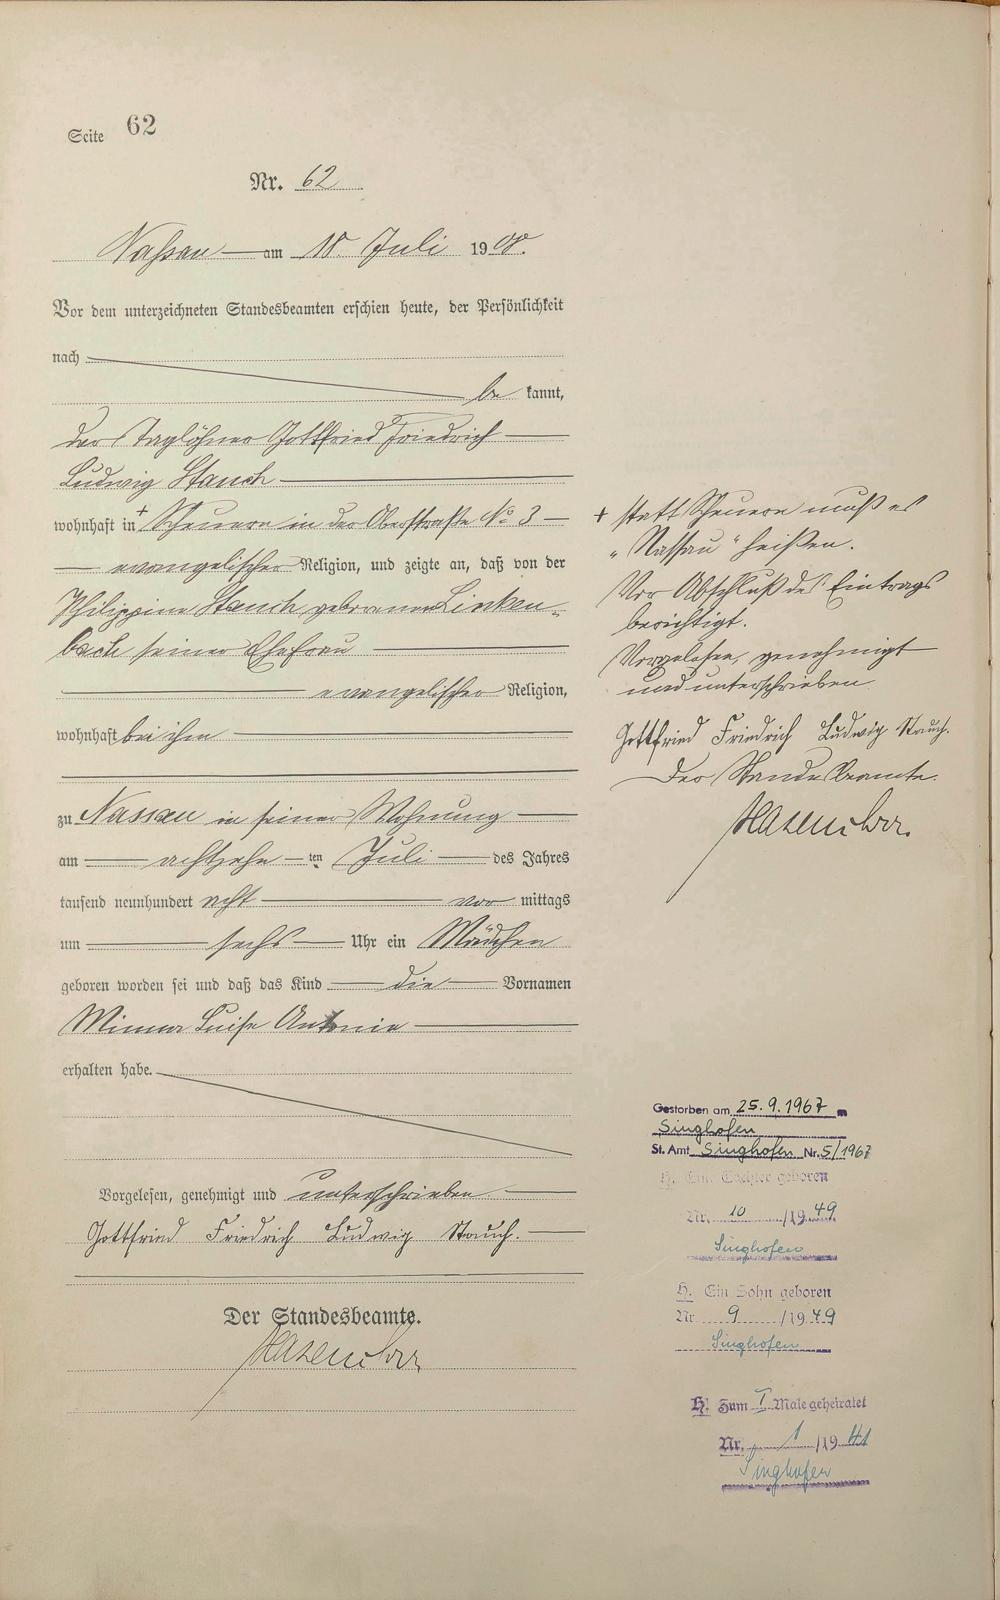 Seite 62
Nr. 62
Nassau am 18. Juli 1908.
Vor dem unterzeichneten Standesbeamten erschien heute, der Persönlichkeit
nach
be kannt,
der Taglöhner Gottfried Friedrich
Ludwig Stauch
wohnhaft in + Scheuern in der Oberstraße No 3
evangelischer Religion, und zeigte an, daß von der
Philippine Stauch geborenen Linken-
bach seiner Ehefrau
evangelischer Religion,
wohnhaft bei ihm
zu Nassau in seiner Wohnung
am achtzehn ten Juli des Jahres
tausend neunhundert acht vor mittags
um sechs Uhr ein Mädchen
geboren worden sei und daß das Kind die Vornamen
Minna Luise Antonie
erhalten habe.
Vorgelesen, genehmigt und unterschrieben
Gottfried Friedrich Ludwig Stauch.
Der Standesbeamte.
+ statt Scheuern muß es
„Nassau“ heißen.
Vor Abschluß des Eintrags
berichtigt.
Vorgelesen, genehmigt
und unterschrieben
Gottfried Friedrich Ludwig Stauch.
Der Standesbeamte.
Gestorben am 25.9.1967 in
Singhofen
St. Amt Singhofen Nr. 5/1967
H. Eine Tochter geboren
Nr. 10 /1949
Singhofen
H. Ein Sohn geboren
Nr. 9 /1949
Singhofen
H. Zum I Male geheiratet
Nr. 1 /1941
Singhofen